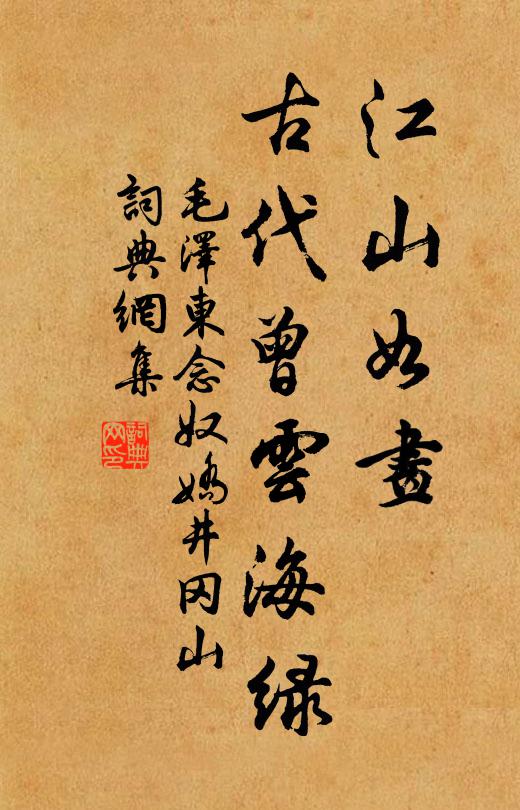 江山如畫
古代曾雲海綠
毛澤東念奴嬌井冈山
詞典網集
詞典
网印